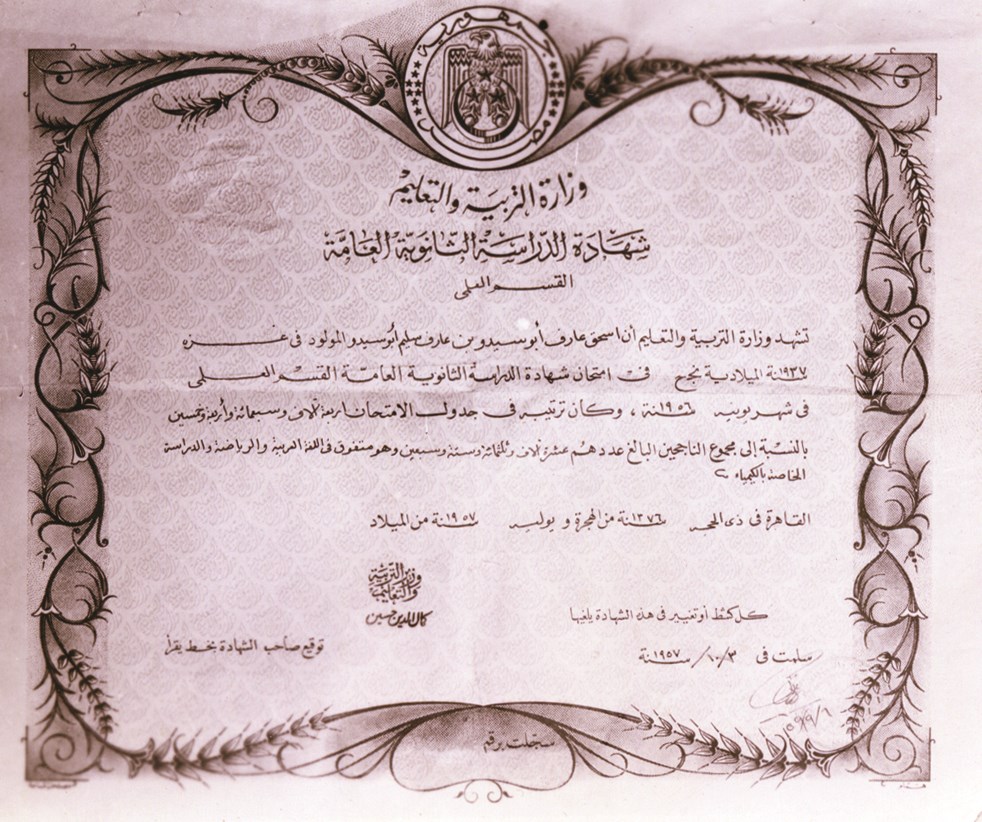 جمهورية
مصر
وزارة التربية والتعليم
شهادة الدراسة الثانوية العامة
القسم العلمى
تشهد وزارة التربية والتعليم أن اسحق عارف أبو سيدو بن عارف سليم أبو سيدو المولود فى غزه
سنة ١٩٣٧ الميلادية نجح فى امتحان شهادة الدراسة الثانوية العامة القسم العلمى
فى شهر يونيه سنة ١٩٥٦ ، وكان ترتيبه فى جدول الامتحان اربعة آلاف وسبعمائة وأربعة وخمسين
بالنسبة إلى مجموع الناجحين البالغ عددهم عشرة آلاف وثلثمائة وستة وسبعين وهو متفوق فى اللغة العربية والرياضة والدراسة
الخاصة بالكيمياء
القاهرة فى ذى الحجة سنة ١٣٧٦ من الهجرة و يوليه سنة ١٩٥٧ من الميلاد
وزير التربية
والتعليم
كمال الدين حسين
كل كشط أو تغيير فى هذه الشهادة يلغيها
توقيع صاحب الشهادة بخط يقرأ
سلمت فى ٣/١٠/ سنة ١٩٥٧
سجلت برقم